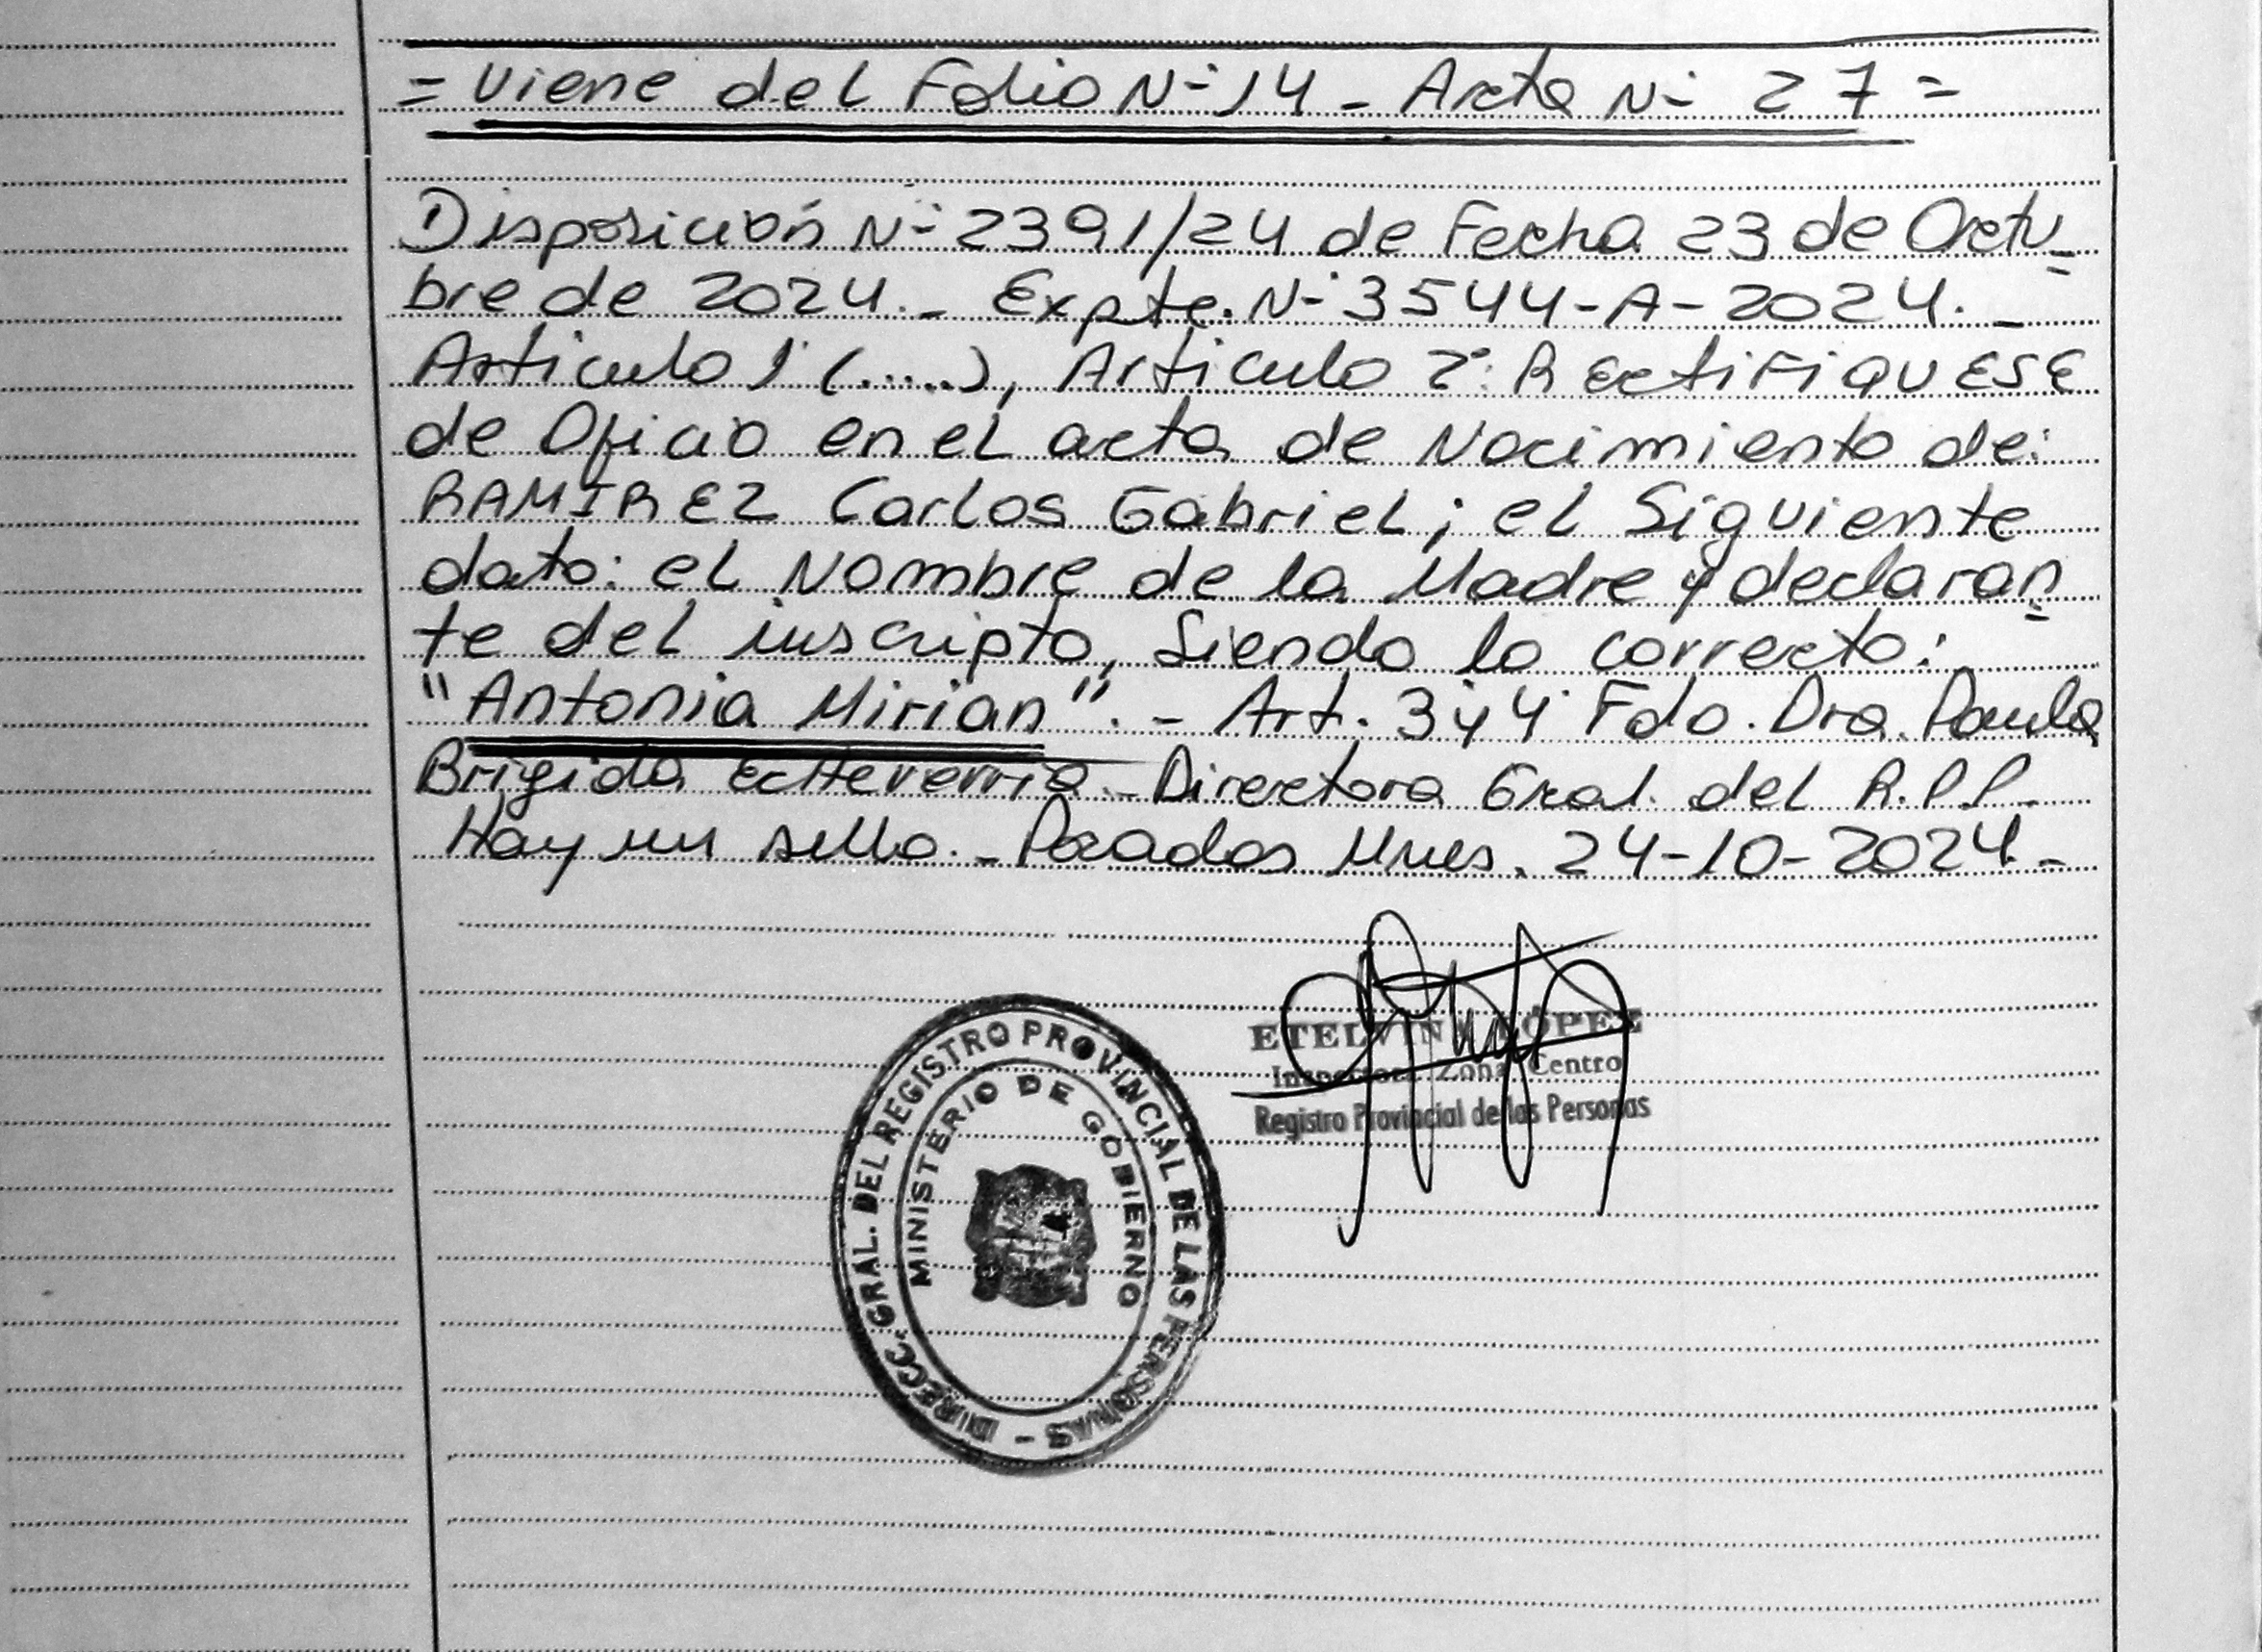 = Viene del Folio N° 14 - Acta N° 27 =
Disposición N° 2391/24 de Fecha 23 de Octu-
bre de 2024.- Expte. N° 3544-A-2024.-
Articulo 1° (.....), Articulo 2°: RectiFiQUESE
de Oficio en el acta de Nacimiento de:
RAMIREZ Carlos Gabriel; el Siguiente
dato: el Nombre de la Madre y declaran
te del inscripto, Siendo lo correcto:
"Antonia Mirian".- Art. 3° y 4° Fdo. Dra. Paula
Brigida Echeverria.- Directora Gral. del R.P.P.
Hay un sello.- Posadas Mnes. 24-10-2024.-
ETELVINA LÓPEZ
Inspectora Zona Centro
Registro Provincial de las Personas
DIRECC. GRAL. DEL REGISTRO PROVINCIAL DE LAS PERSONAS -
MINISTERIO DE GOBIERNO